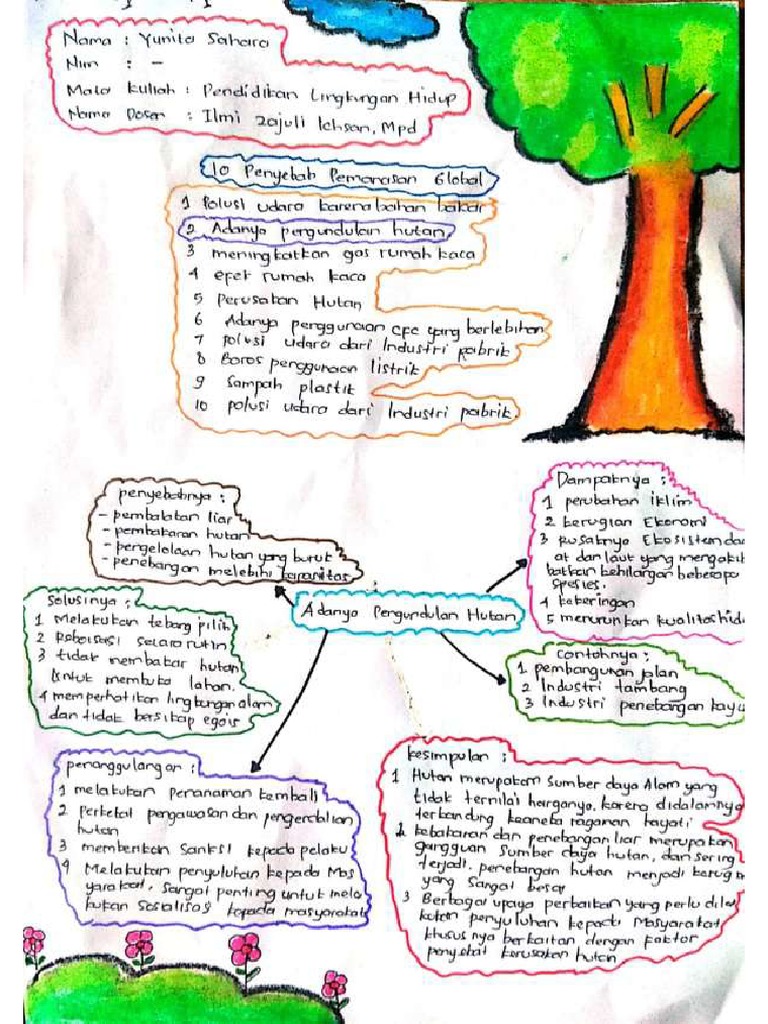 Nama : Yunita Sahara
Nim : -
Mata kuliah : Pendidikan Lingkungan Hidup
Nama Dosen : Ilmi Zajuli Ichsan, Mpd
10 Penyebab Pemanasan Global
1 Polusi udara karena bahan bakar
2 Adanya pergundulan hutan
3 meningkatkan gas rumah kaca
4 efek rumah kaca
5 Perusakan Hutan
6 Adanya penggunaan CFC yang berlebihan
7 polusi udara dari Industri pabrik
8 Boros penggunaan listrik
9 Sampah plastik
10 polusi udara dari Industri pabrik.
penyebabnya :
- pembalatan liar
- pembakaran hutan
- pengelolaan hutan yang buruk
- penebangan melebihi kapasitas
Dampaknya :
1 perubahan iklim
2 kerugian Ekonomi
3 Rusaknya Ekosistem dar
at dan laut yang mengakib
batkan kehilangan beberapa
spesies.
4 kekeringan
5 menurunkan kualitas hidu
Adanya Pengundulan Hutan
Solusinya :
1 Melakukan tebang pilih
2 Reboisasi secara rutin
3 tidak membakar hutan
Untuk membuka lahan.
4 memperhatikan lingkungan alam
dan tidak bersikap egois
Contohnya :
1 pembangunan jalan
2 Industri tambang
3 Industri penebangan kayu
penanggulangan :
1 melakukan penanaman kembali
2 Perketat pengawasan dan pengendalian
hutan
3 memberikan Sanksi kepada pelaku
4 Melakukan penyuluhan kepada Mas
yarakat, Sangat penting untuk mela
kukan Sosialisas kepada masyarakat
kesimpulan :
1 Hutan merupakan Sumber daya Alam yang
tidak ternilai harganya, karena didalamnya
terkandung keaneka ragaman hayati
2 kebakaran dan penebangan liar merupakan
gangguan Sumber daya hutan, dan sering
terjadi. penebangan hutan menjadi kerugian
yang Sangat besar
3 Berbagai upaya perbaikan yang perlu dila
kukan penyuluhan kepada Masyarakat
khusus nya berkaitan dengan faktor
penyebab kerusakan hutan